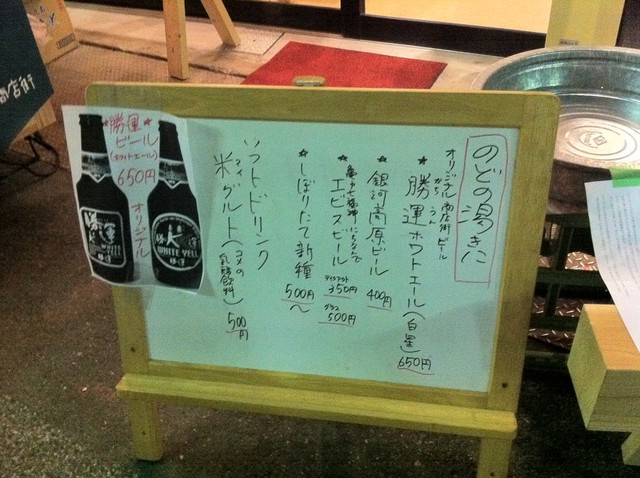 のどの渇きに
オリジナル商店街ビール
かち うん
★勝運ホワイトエール(白星)
650円
★銀河高原ビール 400円
亀戸七福神にちなんで
★エビスビール
テイクアウト 350円
グラス 500円
★しぼりたて新種 500円～
ソフトドリンク
マイ
米グルト(コメの乳酸飲料) 500円
★勝運★
ビール
(ホワイトエール)
650円
オリジナル
勝運
WHITE YELL
WHITE YELL
勝運
商店街